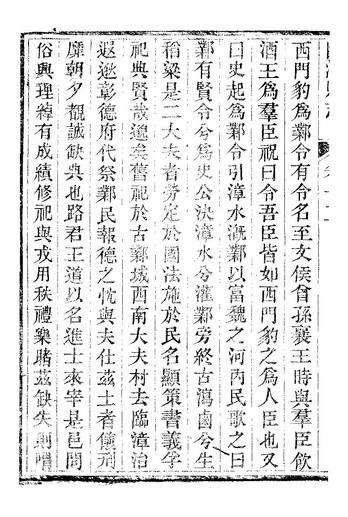 西門豹爲鄴令有令名至文侯曾孫襄王時與羣臣飲
酒王爲羣臣祝曰令吾臣皆如西門豹之爲人臣也又
曰史起爲鄴令引漳水溉鄴以富魏之河内民歌之曰
鄴有賢令兮爲史公決漳水兮灌鄴旁終古潟鹵兮生
稻粱是二大夫者勞定於國法施於民名顯策書義孚
祀典賢哉邈矣舊祀於古鄴城西南大夫村去臨漳治
遐逖彰德府代祭鄴民報德之忱與夫仕茲土者儀刑
靡朝夕觀誠缺典也路君王道以名進士來宰是邑問
俗興理綽有成績修祀與戎用秩禮樂睹茲缺失則喟